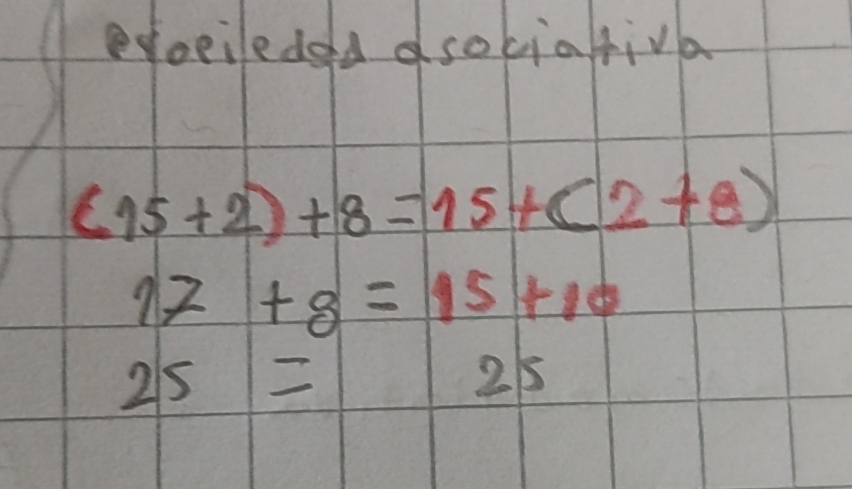 propiedad asociativa
(15+2)+8=15+(2+8)
17 +8=15+10
25 = 25